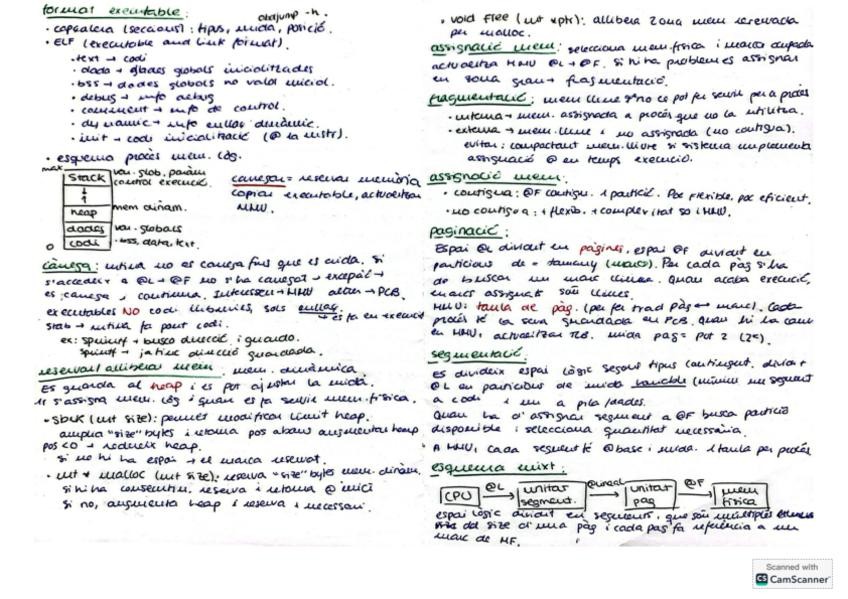 format executable:
objdump -h
· capçalera (seccions): tipus, mida, posició.
· ELF (executable and link format).
· text → codi
· data → dades globals inicialitzades
· bss → dades globals no valor inicial.
· debug → info debug
· comment → info de control.
· dynamic → info enllaç dinàmic.
· init → codi inicialització (@ 1a instr).
· esquema procés mem. lòg.
max
stack
var. glob, paràm
control execució.
heap
mem dinàm.
dades
var. globals
0
codi
· bss, data, text.
càrrega = reservar memòria
copiar executable, actualitzar
MMU.
càrrega: rutina no es carrega fins que es crida. Si
s'accedeix a @L → @F no s'ha carregat → excepció →
es carrega i continua.
executables NO codi llibreries, sols enllaç
→ es fa en execució
stab → rutina fa pont codi.
ex: sprintf → busca direcció i guarda.
sprintf → ja tinc direcció guardada.
reservar/alliberar mem: mem. dinàmica.
Es guarda al heap i es pot ajustar la mida.
1r s'assigna mem. lòg i quan es fa servir mem. física.
· sbrk (int size): permet modificar límit heap.
amplia "size" bytes i retorna pos abans augmentar heap
pos <0 → redueix heap.
Si no hi ha espai → el marca reservat.
· int * malloc (int size): reserva "size" bytes mem. dinàm.
si hi ha consecutiu, reserva i retorna @ inici
Si no, augmenta heap i reserva + necessari.
· void free (int *ptr): allibera zona mem reservada
per malloc.
assignació mem: selecciona mem. física i marca ocupada
actualitza MMU @L → @F. Si hi ha problemes assignar
en zona gran → fragmentació.
fragmentació: mem lliure no es pot fer servir per a procés
· interna → mem. assignada a procés que no la utilitza.
· externa → mem. lliure i no assignada (no contigua).
evitar: compactant mem. lliure si sistema implementa
assignació @ en temps execució.
assignació mem:
· contigua: @F contigu. 1 partició. Poc flexible, poc eficient.
· no contigua: + flexib. + complexitat so i MMU.
paginació:
Espai @L dividit en pàgines, espai @F dividit en
particions de = tamany (marc). Per cada pàg s'ha
de buscar un marc lliure. Quan acaba execució,
marcs assignats són lliures.
MMU: taula de pàg. (per fer trad pàg ↔ marc). Cada
procés té la seva guardada en PCB. Quan hi ha canvi
en MMU, actualitzar TLB. mida pàg = pot 2 (2ⁿ).
segmentació:
Es divideix espai lògic segons tipus contingut. dividir
@L en particions de mida variable (mínim un segment
a codi i un a pila/dades.
Quan ha d'assignar segment a @F busca partició
disponible i selecciona quantitat necessària.
A MMU, cada segment té @base i mida. 1 taula per procés
esquema mixt:
CPU @L unitat segment. @lineal unitat pàg @F mem física
espai lògic dividit en segments, que són múltiples
del size d'una pàg i cada pàg fa referència a un
marc de MF.
Scanned with
CS CamScanner